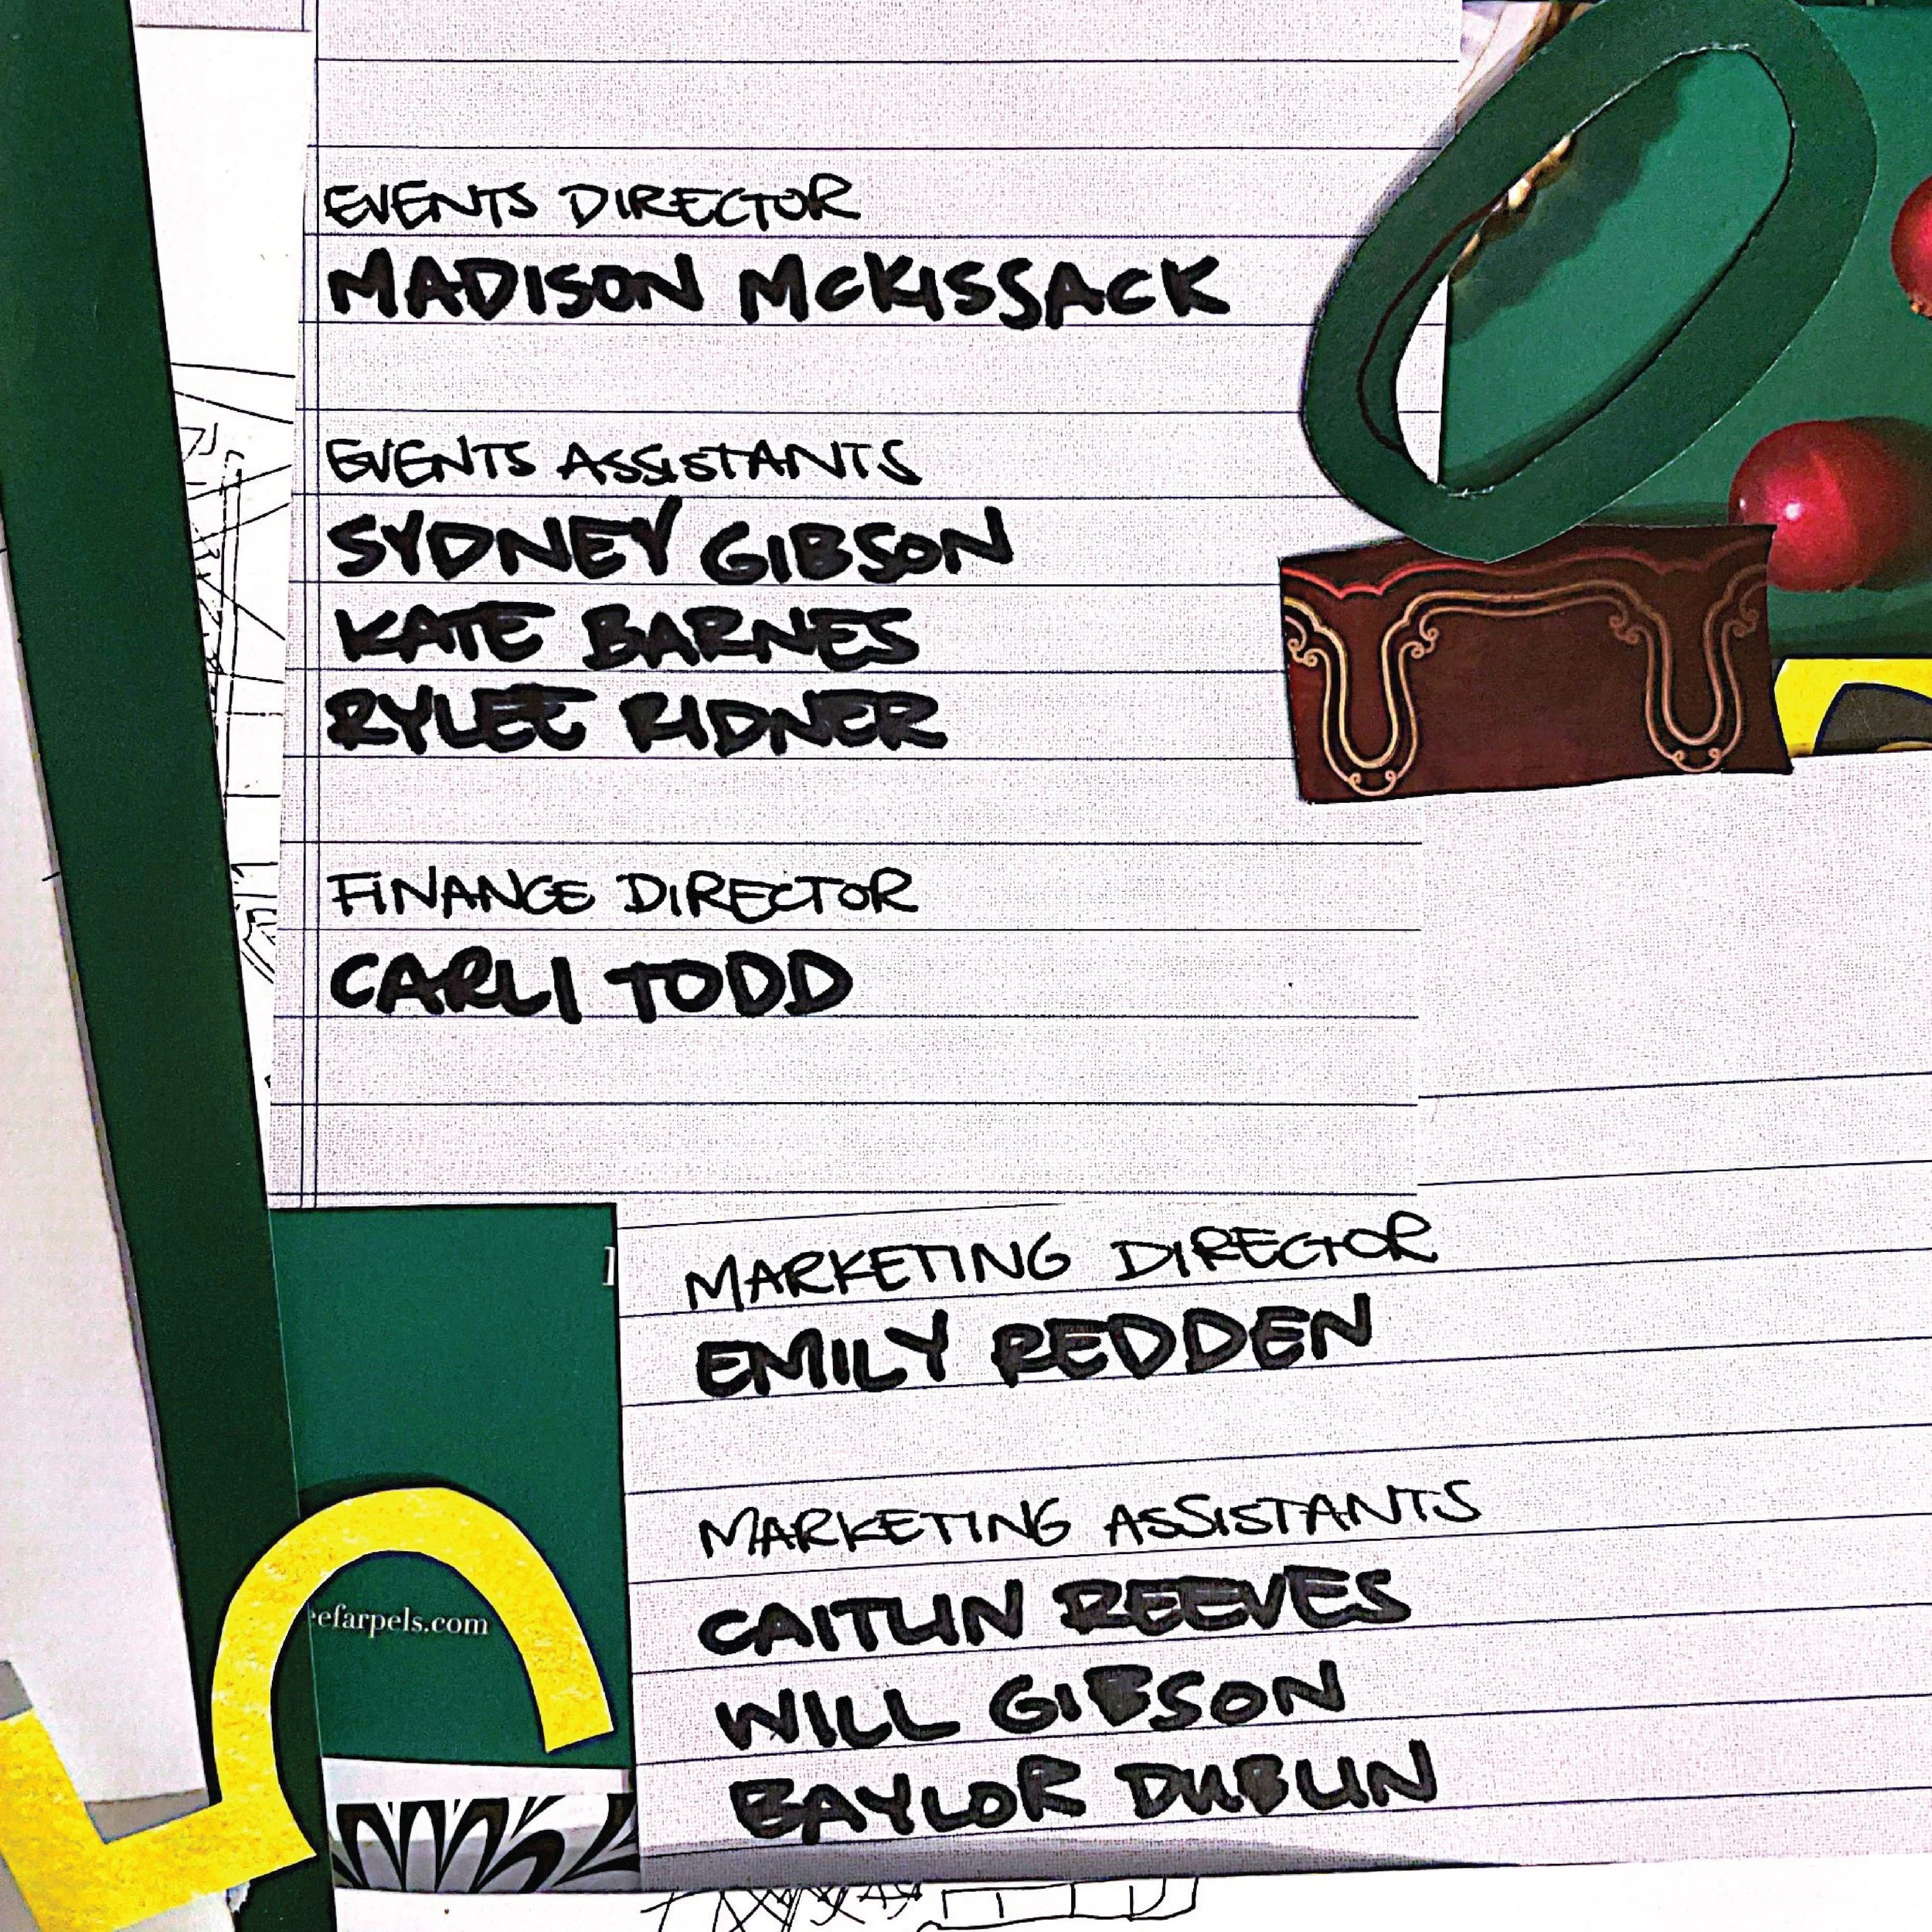 EVENTS DIRECTOR
MADISON McKISSACK
EVENTS ASSISTANTS
SYDNEY GIBSON
KATE BARNES
RYLEE RIDNER
FINANCE DIRECTOR
CARLI TODD
MARKETING DIRECTOR
EMILY REDDEN
MARKETING ASSISTANTS
CAITLIN REEVES
WILL GIBSON
BAYLOR DUBLIN
eefarpels.com